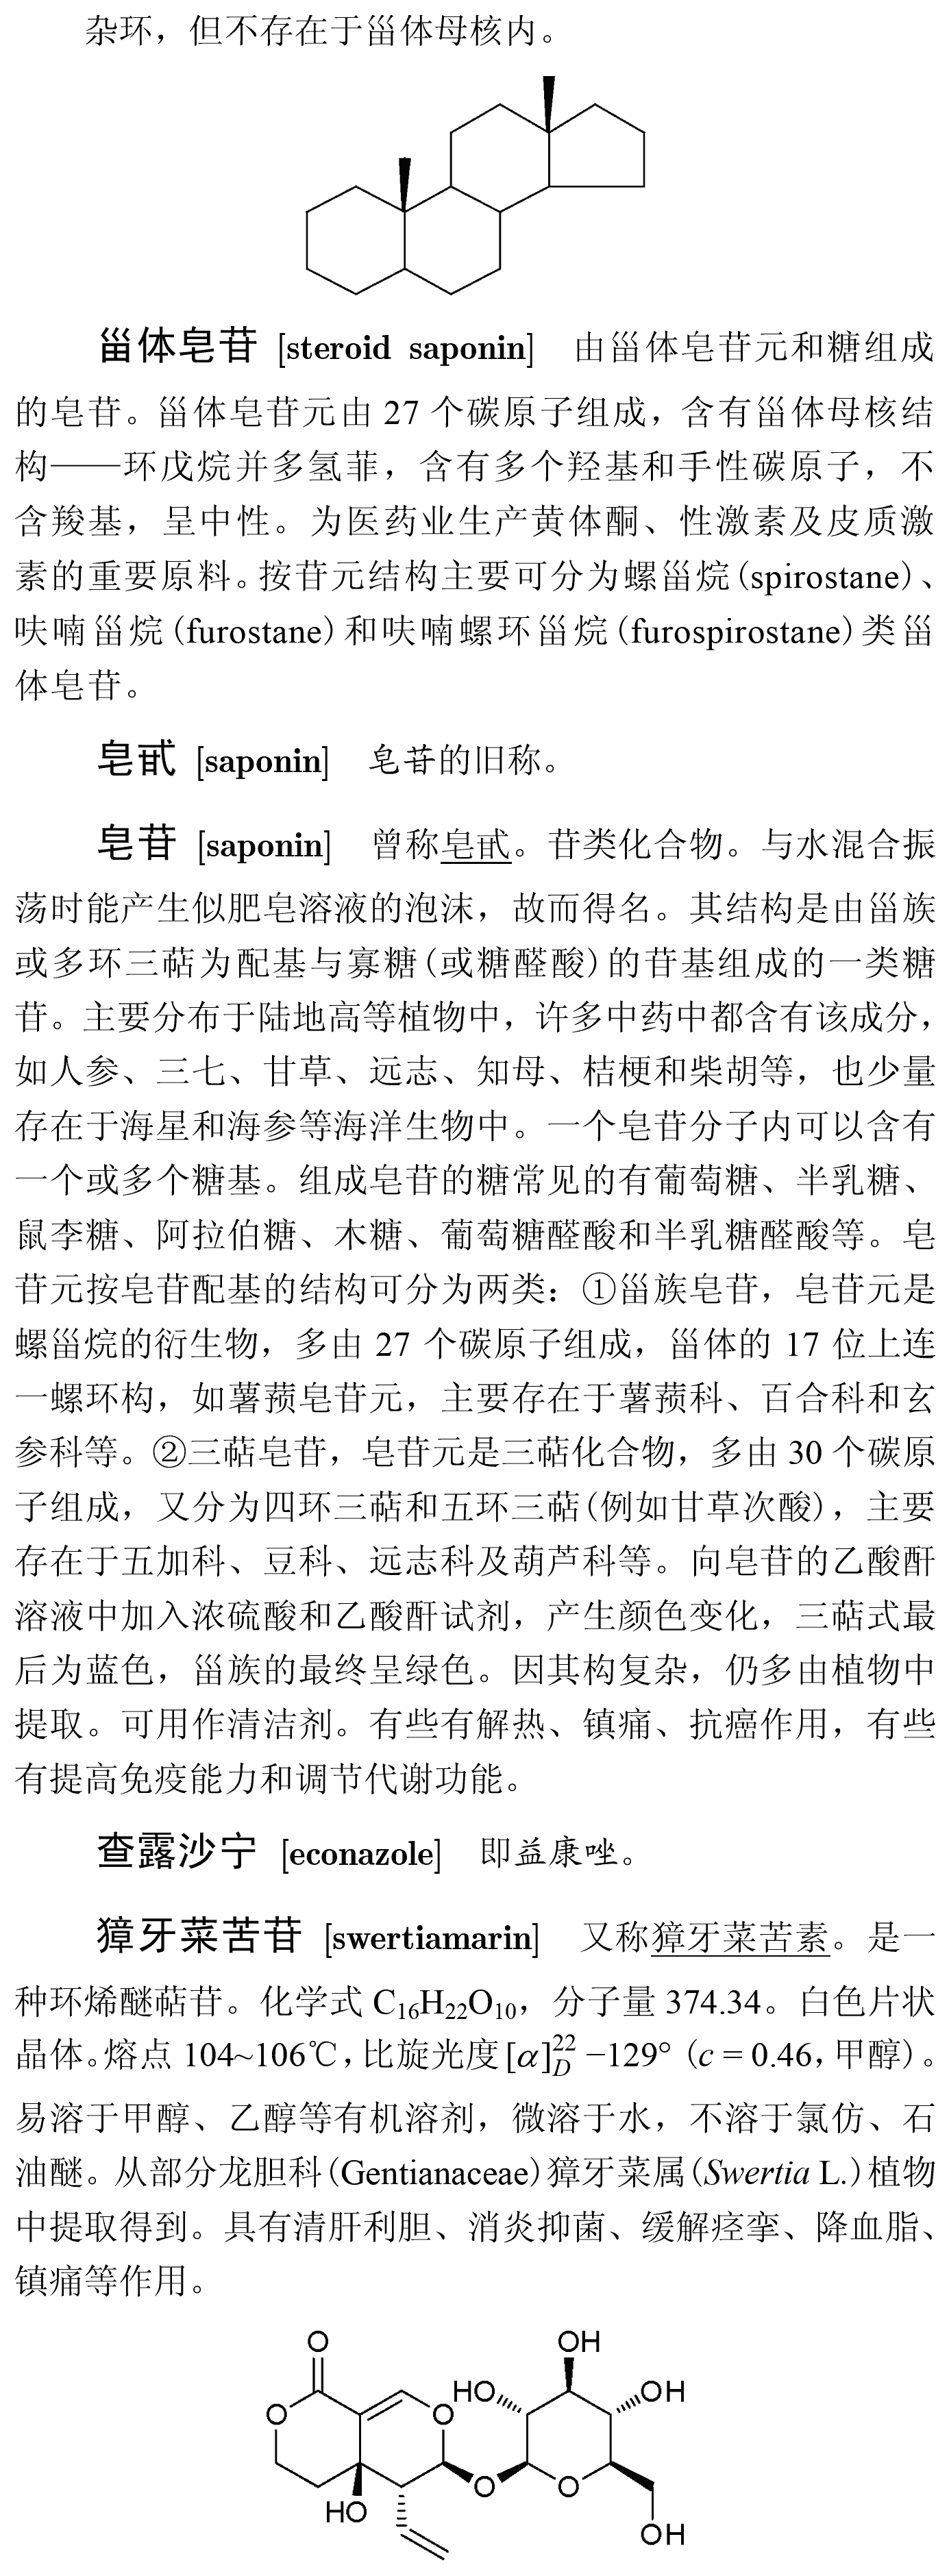 杂环，但不存在于甾体母核内。
甾体皂苷 [steroid saponin] 由甾体皂苷元和糖组成
的皂苷。甾体皂苷元由 27 个碳原子组成，含有甾体母核结
构——环戊烷并多氢菲，含有多个羟基和手性碳原子，不
含羧基，呈中性。为医药业生产黄体酮、性激素及皮质激
素的重要原料。按苷元结构主要可分为螺甾烷(spirostane)、
呋喃甾烷(furostane)和呋喃螺环甾烷(furospirostane)类甾
体皂苷。
皂甙 [saponin] 皂苷的旧称。
皂苷 [saponin] 曾称皂甙。苷类化合物。与水混合振
荡时能产生似肥皂溶液的泡沫，故而得名。其结构是由甾族
或多环三萜为配基与寡糖(或糖醛酸)的苷基组成的一类糖
苷。主要分布于陆地高等植物中，许多中药中都含有该成分，
如人参、三七、甘草、远志、知母、桔梗和柴胡等，也少量
存在于海星和海参等海洋生物中。一个皂苷分子内可以含有
一个或多个糖基。组成皂苷的糖常见的有葡萄糖、半乳糖、
鼠李糖、阿拉伯糖、木糖、葡萄糖醛酸和半乳糖醛酸等。皂
苷元按皂苷配基的结构可分为两类：①甾族皂苷，皂苷元是
螺甾烷的衍生物，多由 27 个碳原子组成，甾体的 17 位上连
一螺环构，如薯蓣皂苷元，主要存在于薯蓣科、百合科和玄
参科等。②三萜皂苷，皂苷元是三萜化合物，多由 30 个碳原
子组成，又分为四环三萜和五环三萜(例如甘草次酸)，主要
存在于五加科、豆科、远志科及葫芦科等。向皂苷的乙酸酐
溶液中加入浓硫酸和乙酸酐试剂，产生颜色变化，三萜式最
后为蓝色，甾族的最终呈绿色。因其构复杂，仍多由植物中
提取。可用作清洁剂。有些有解热、镇痛、抗癌作用，有些
有提高免疫能力和调节代谢功能。
查露沙宁 [econazole] 即益康唑。
獐牙菜苦苷 [swertiamarin] 又称獐牙菜苦素。是一
种环烯醚萜苷。化学式 C₁₆H₂₂O₁₀，分子量 374.34。白色片状
晶体。熔点 104~106℃，比旋光度 [α]D²² −129° (c = 0.46，甲醇)。
易溶于甲醇、乙醇等有机溶剂，微溶于水，不溶于氯仿、石
油醚。从部分龙胆科(Gentianaceae)獐牙菜属(Swertia L.)植物
中提取得到。具有清肝利胆、消炎抑菌、缓解痉挛、降血脂、
镇痛等作用。
O OH
O O HO OH
O O
HO
OH